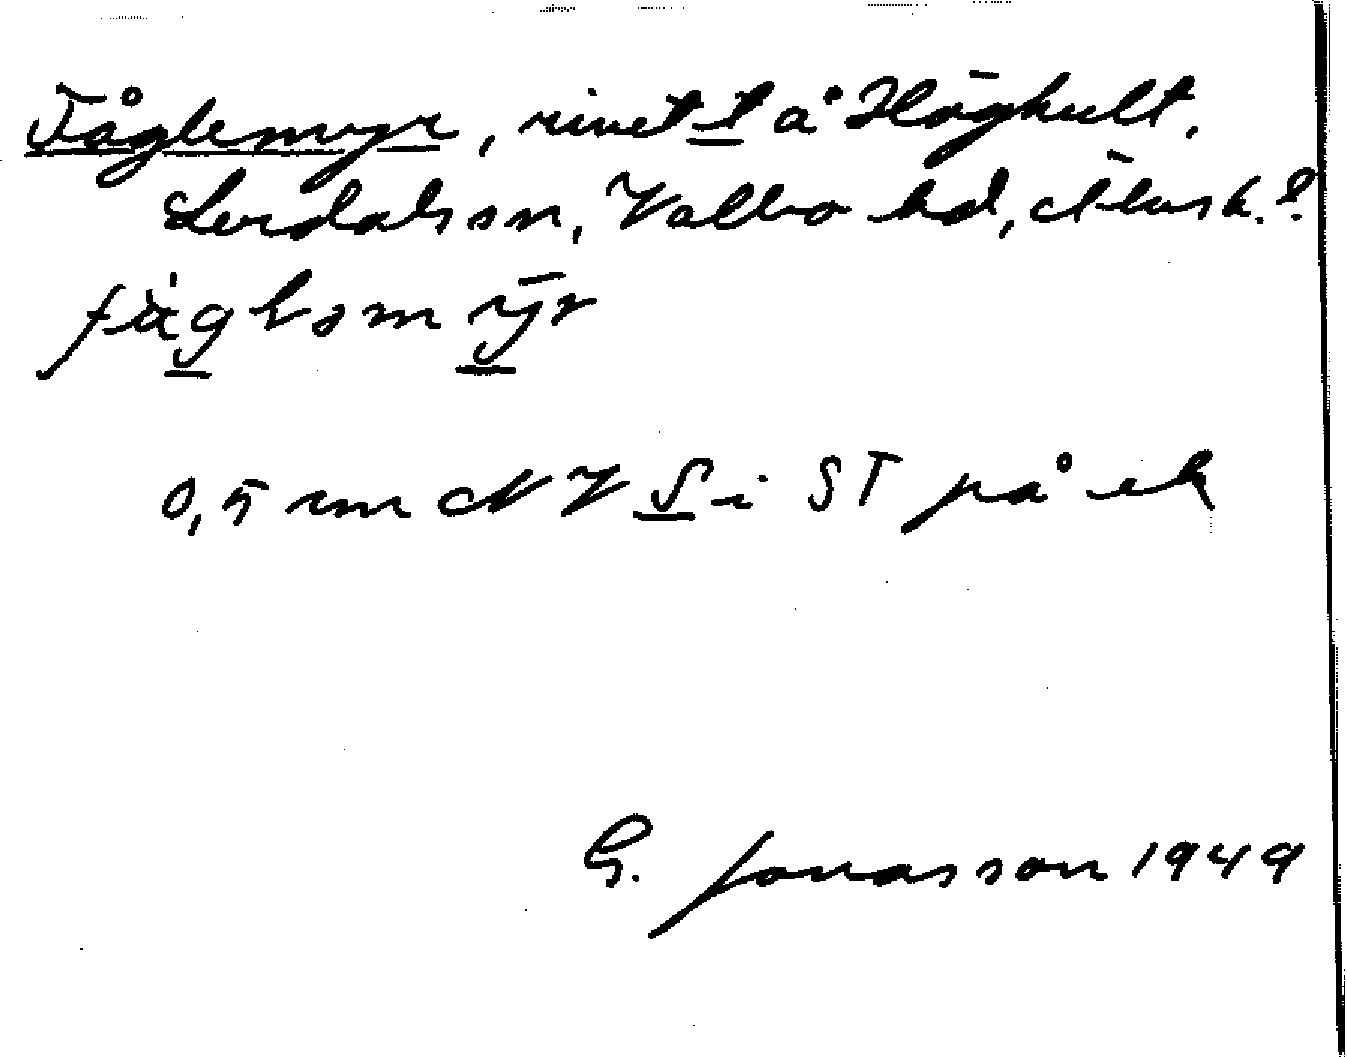 Fåglemyr, rivet t å Höghult,
Lerdals sn, Valbo hd, Älvsb.?
fåglomȳr
0,5 cm NV S i ST på ek
G. Jonasson 1949